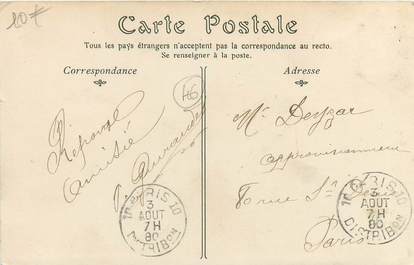 20€
Carte Postale
Tous les pays étrangers n'acceptent pas la correspondance au recto.
Se renseigner à la poste.
Correspondance
Adresse
46
Réponse
amitié
Mr Deysar
approvisionneur
rue St Denis
Paris
PARIS 10
3
AOUT
7H
DISTRIBON
PARIS 10
3
AOUT
7H
DISTRIBON